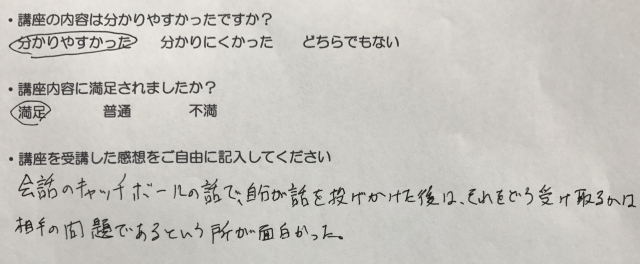 ・講座の内容は分かりやすかったですか？
分かりやすかった 分かりにくかった どちらでもない
・講座内容に満足されましたか？
満足 普通 不満
・講座を受講した感想をご自由に記入してください
会話のキャッチボールの話で、自分が話を投げかけた後は、それをどう受け取るかは
相手の問題であるという所が面白かった。